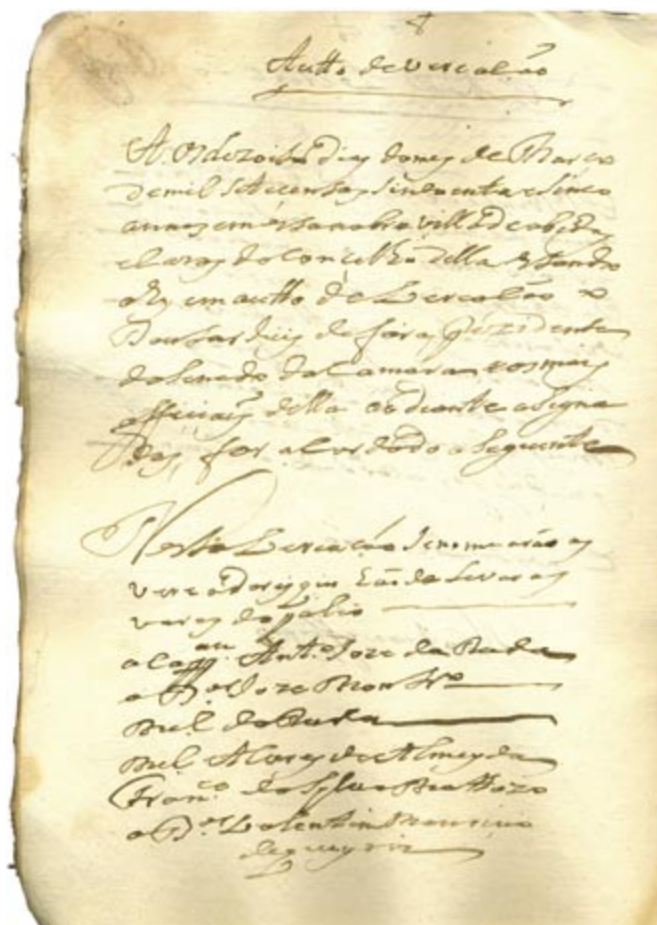 Autto de Vereacão
Aos dezoito dias do mes de Março
de mil setecentos e sincoenta e sinco
annos em esta nobre villa de obidos
e cazas do Concelho della estando
ahy em autto de Vereacão o
Doutor Juis de fora, Prezidente
do Senado da Camara e os mais
officiais della ao diante asigna
dos, foi acordado o seguinte
Nesta Vereacão se nomearão as
vereadores que hão de levar as
varas do Palio
Ant.º Joze da
o B.el Joze Montr.º
M.el da
M.el Alvares de Almeyda
Fran.co da Sylva Mattozo
o D.or Valentim